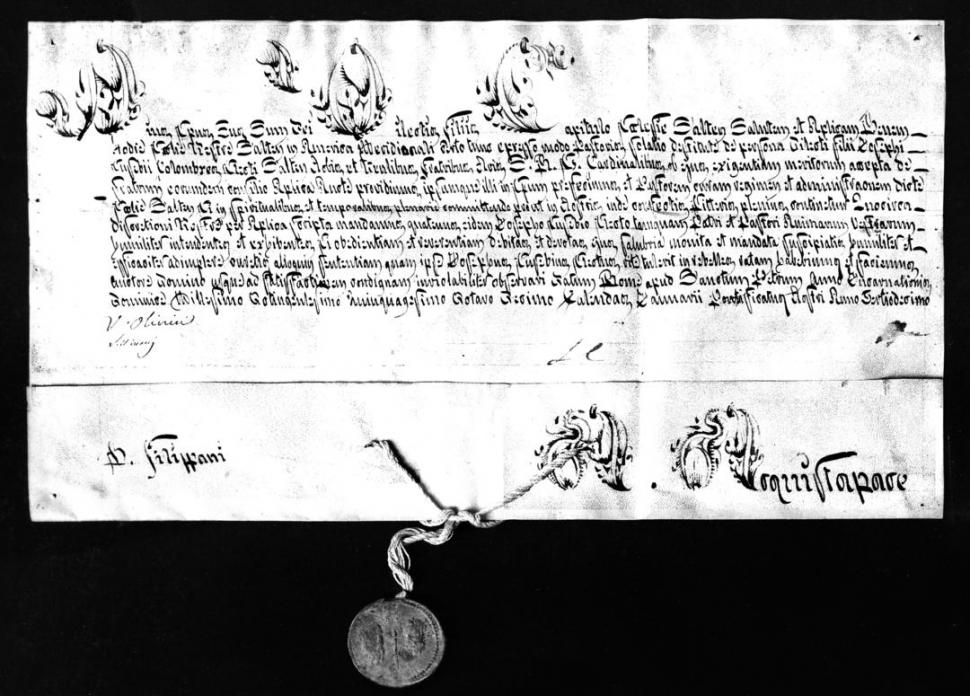 Pius Epus Svus Svum Dei Dilectis filiis Capitulo Ecclesie Salten Salutem et Aplicam Benem
Hodie Eccle Vestre Salten in America Meridionali certo tunc expresso modo Pastoris solatio destitute de persona dilecti filii Josephi
Eusebii Colombres Electi Salten Nobis, et Venlibus Fratribus Nris S. R. E. Cardinalibus ob suor exigentiam meritorum accepta de
Fratrum eorundem consilio Aplica Aucte providimus, ipsumque illi in Epum prefecimus, et Pastorem curam regimen et administraonem dicte
Eccle Salten ei in spiritualibus, et temporalibus plenarie committendo prout in Nostris inde confectis Litteris plenius continetur Quocirca
discretioni Vestre per Aplica scripta mandamus, quatenus eidem Josepho Eusebio Electo tamquam Patri et Pastori Animarum Vestrarum
humiliter intendentes et exhibentes ei obedientiam et reverentiam debitas, et devotas, ejus salubria monita et mandata suscipiatis humiliter et
efficaciter adimplere curetis alioquin sententiam quam ipse Josephus Eusebius Electus rite tulerit in rebelles ratam habebimus et faciemus,
auctore Domino usque ad satisfactionem condignam inviolabiliter observari Datum Rome apud Sanctum Petrum Anno Incarnationis
Dominice Millesimo Octingentesimo Quinquagesimo Octavo Decimo Kalendas Januarii Pontificatus Nostri Anno Tertiodecimo
P. Filippani
Acquistapace